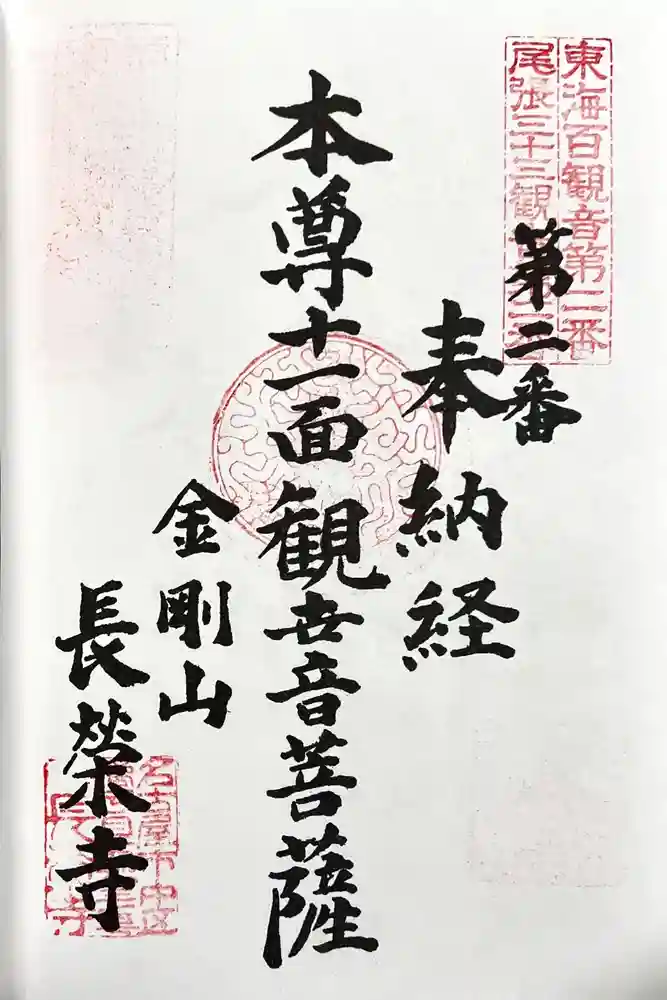 東海百観音第二番
尾張三十三観
第二番
奉納経
本尊十一面観世音菩薩
金剛山
長榮寺
名古屋市中区